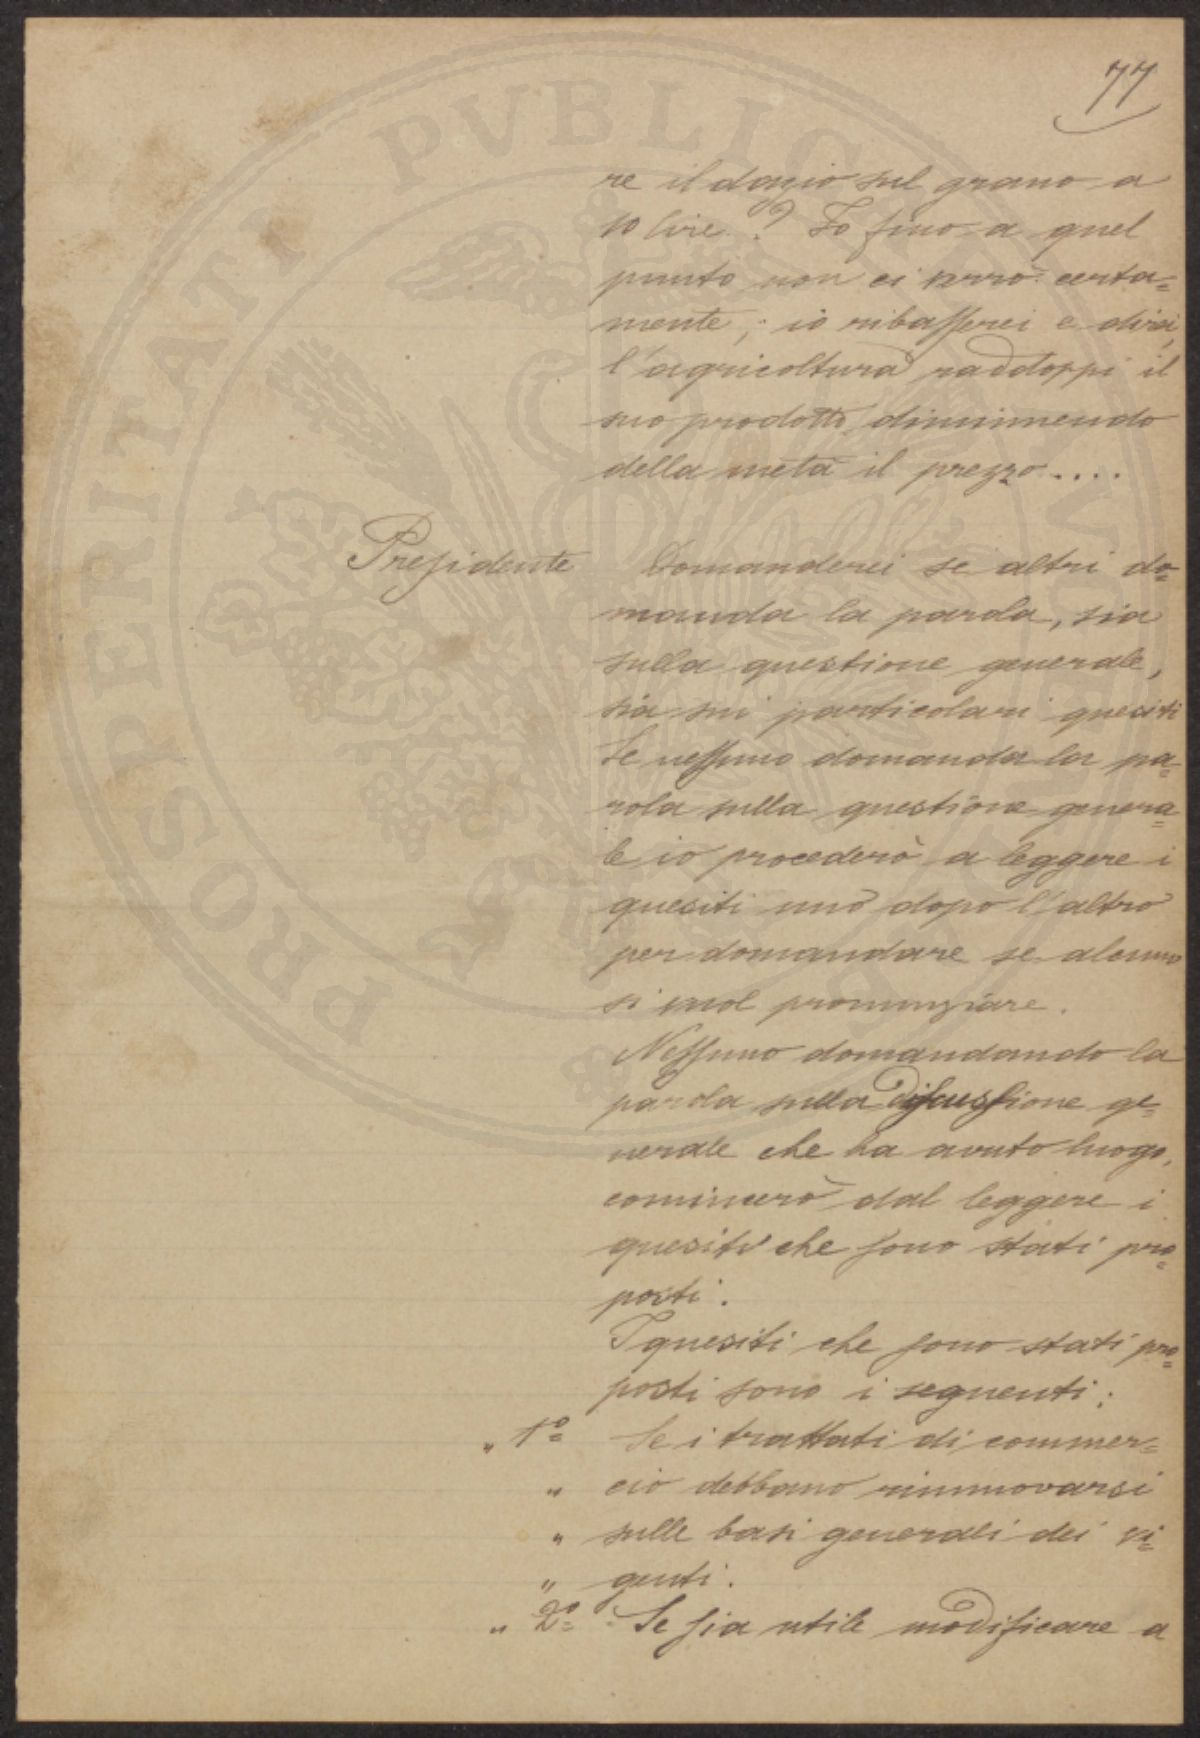 77
re il dazio sul grano a
10 lire? Io fino a quel
punto non ci verrò certa=
mente; io ribasserei e direi,
l'agricoltura raddoppi il
suo prodotto, diminuendo
della metà il prezzo....
Presidente Domanderei se altri do=
manda la parola, sia
sulla questione generale,
sia sui particolari quesiti
Se nessuno domanda la pa=
rola sulla questione genera=
le io procederò a leggere i
quesiti uno dopo l'altro
per domandare se alcuno
si vuol pronunziare.
Nessuno domandando la
parola sulla discussione ge=
nerale che ha avuto luogo,
comincerò dal leggere i
quesiti che sono stati pro=
posti.
I quesiti che sono stati pro=
posti sono i seguenti:
„ 1º Se i trattati di commer=
„ cio debbano rinnovarsi
„ sulle basi generali dei vi=
„ genti.
„ 2º Se sia utile modificare a
PROSPERITATI PVBLICAE